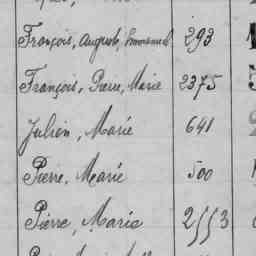 François, Auguste, Emmanuel 293
François, Pierre, Marie 2375
Julien, Marie 641
Pierre, Marie 500
Pierre, Marie 2553